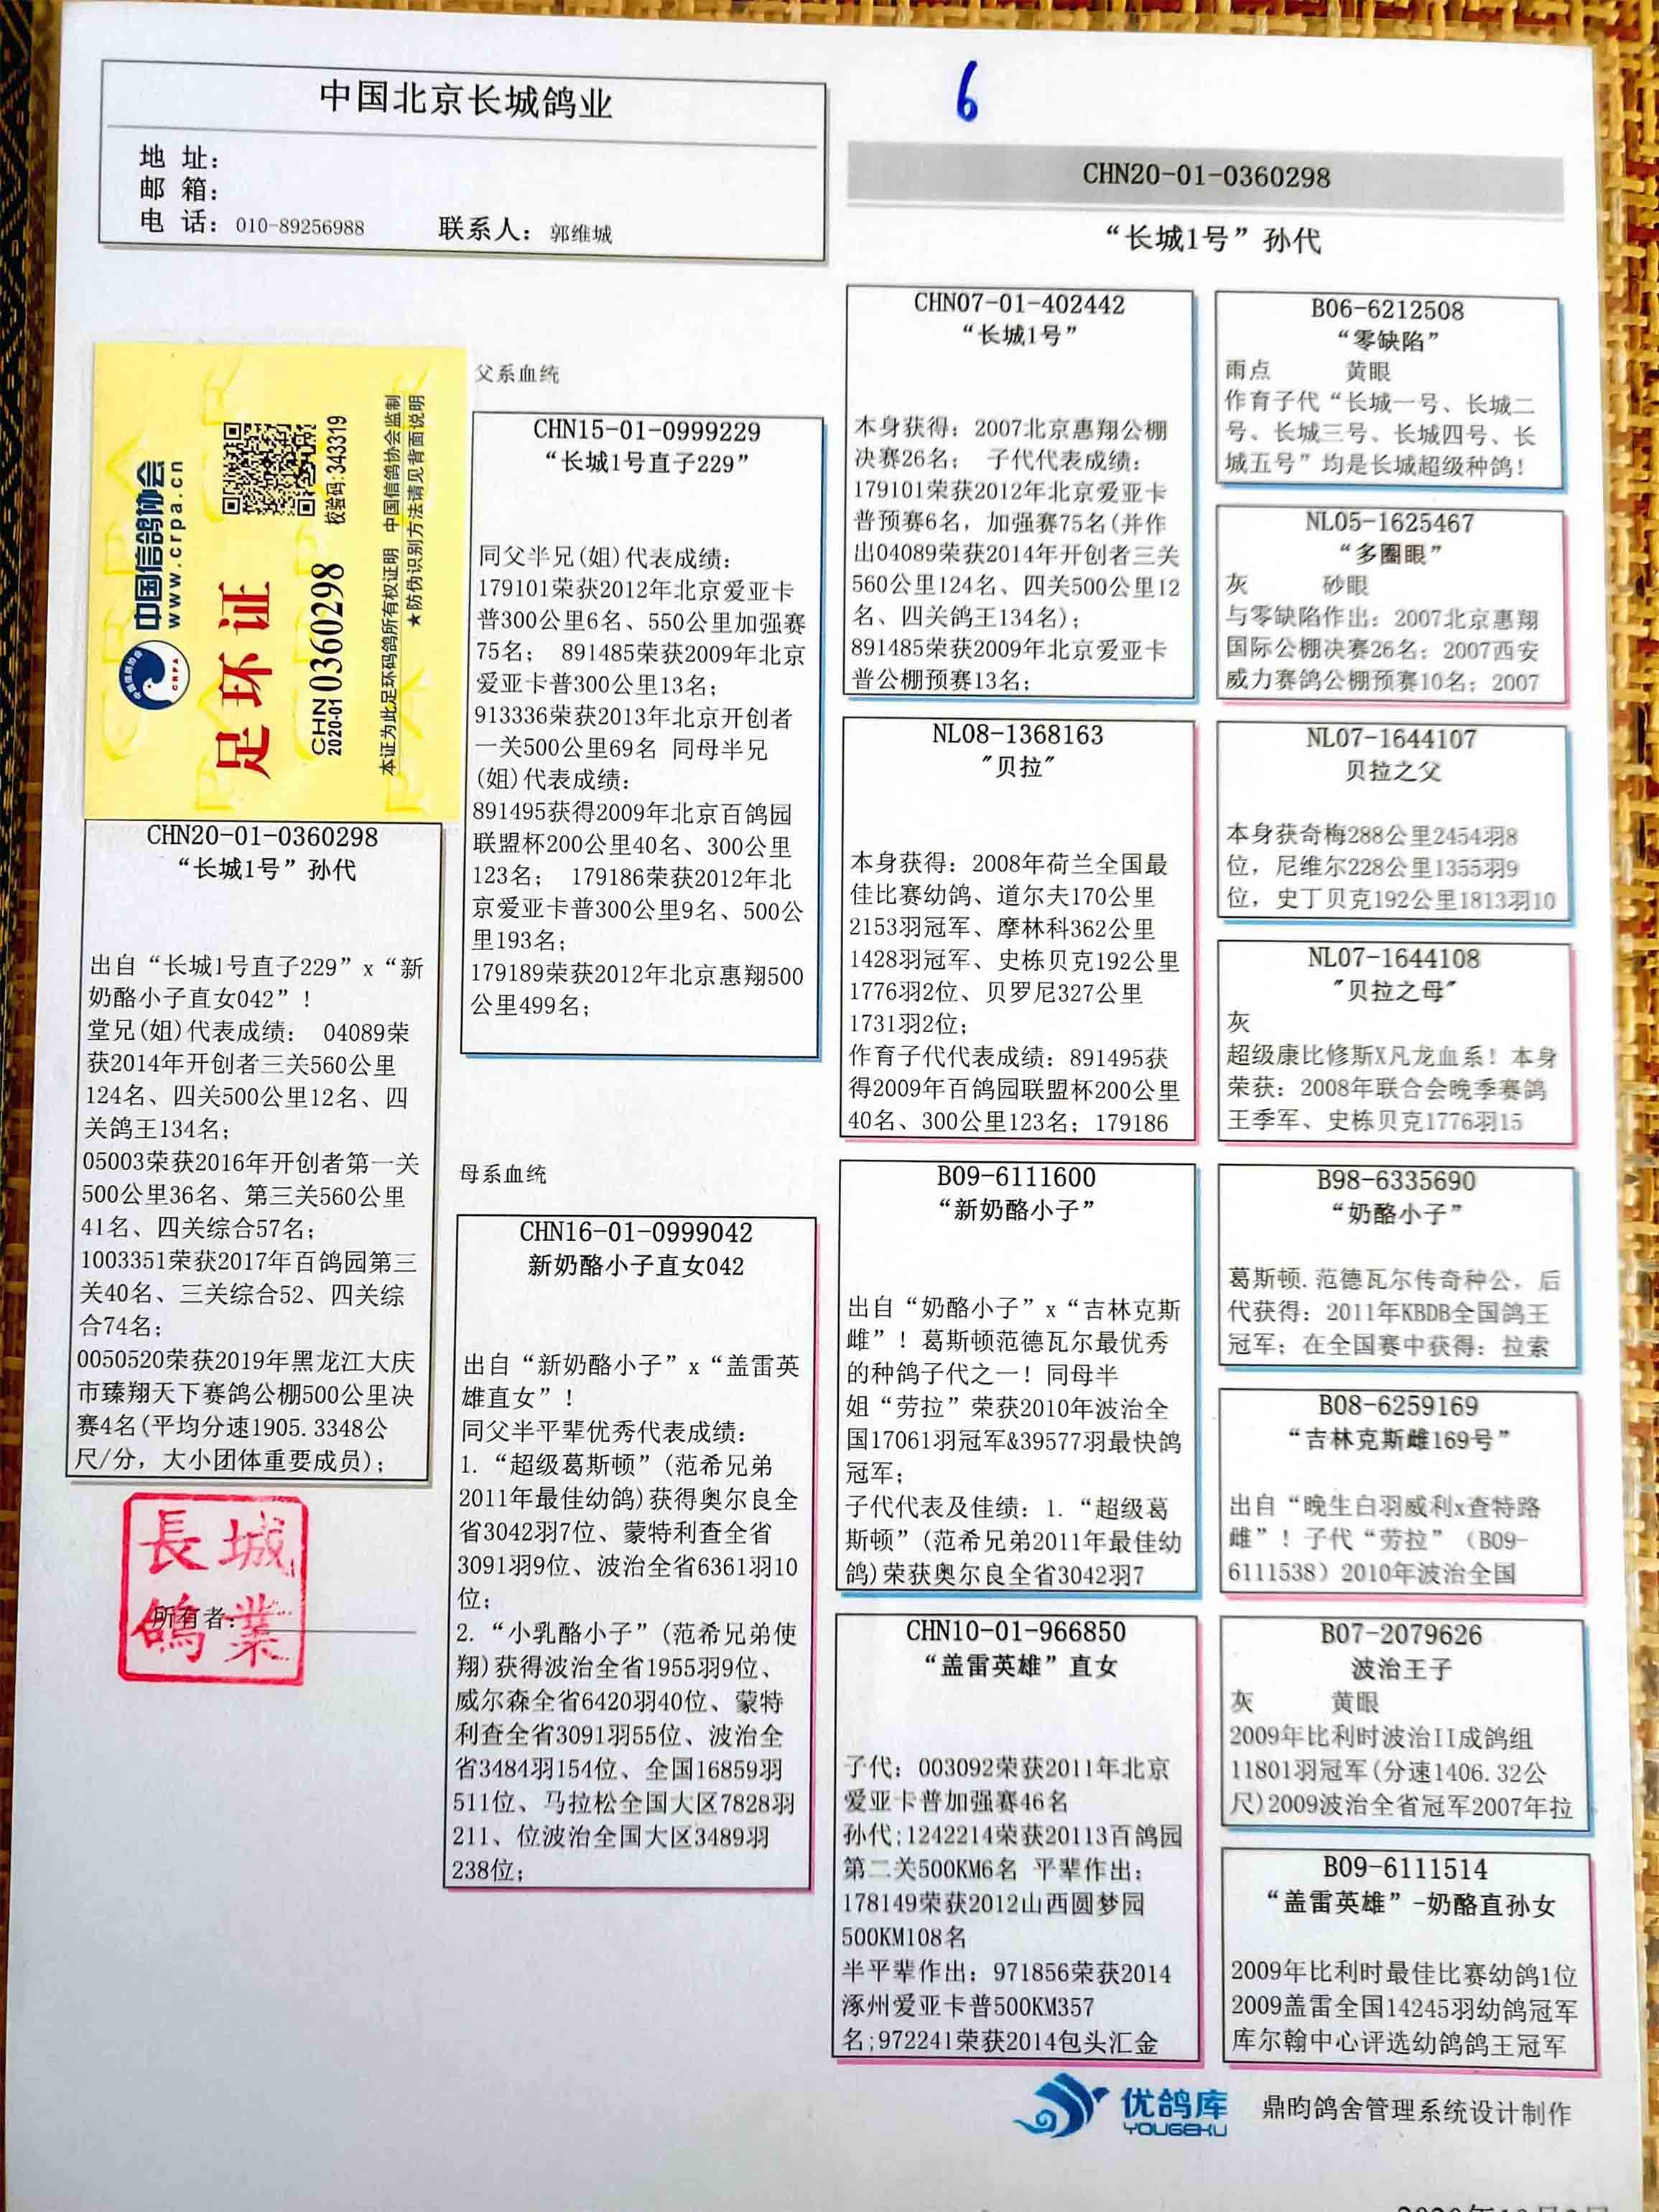 中国北京长城鸽业
地 址：
邮 箱：
电 话： 010-89256988 联系人： 郭维城
6
CHN20-01-0360298
“长城1号”孙代
中国信鸽协会
www.crpa.cn
CRPA
足环证
校验码:343319
CHN
2020-01 0360298
本证为此足环码鸽所有权证明 中国信鸽协会监制
★防伪识别方法请见背面说明
CHN20-01-0360298
“长城1号”孙代
出自“长城1号直子229”x“新
奶酪小子直女042”！
堂兄(姐)代表成绩： 04089荣
获2014年开创者三关560公里
124名、四关500公里12名、四
关鸽王134名；
05003荣获2016年开创者第一关
500公里36名、第三关560公里
41名、四关综合57名；
1003351荣获2017年百鸽园第三
关40名、三关综合52、四关综
合74名；
0050520荣获2019年黑龙江大庆
市臻翔天下赛鸽公棚500公里决
赛4名(平均分速1905.3348公
尺/分，大小团体重要成员)；
長城
鴿業
所有者:
父系血统
CHN15-01-0999229
“长城1号直子229”
同父半兄(姐)代表成绩：
179101荣获2012年北京爱亚卡
普300公里6名、550公里加强赛
75名； 891485荣获2009年北京
爱亚卡普300公里13名；
913336荣获2013年北京开创者
一关500公里69名 同母半兄
(姐)代表成绩：
891495获得2009年北京百鸽园
联盟杯200公里40名、300公里
123名； 179186荣获2012年北
京爱亚卡普300公里9名、500公
里193名；
179189荣获2012年北京惠翔500
公里499名；
母系血统
CHN16-01-0999042
新奶酪小子直女042
出自“新奶酪小子”x“盖雷英
雄直女”！
同父半平辈优秀代表成绩：
1. “超级葛斯顿”(范希兄弟
2011年最佳幼鸽)获得奥尔良全
省3042羽7位、蒙特利查全省
3091羽9位、波治全省6361羽10
位；
2. “小乳酪小子”(范希兄弟使
翔)获得波治全省1955羽9位、
威尔森全省6420羽40位、蒙特
利查全省3091羽55位、波治全
省3484羽154位、全国16859羽
511位、马拉松全国大区7828羽
211、位波治全国大区3489羽
238位；
CHN07-01-402442
“长城1号”
本身获得：2007北京惠翔公棚
决赛26名； 子代代表成绩：
179101荣获2012年北京爱亚卡
普预赛6名，加强赛75名(并作
出04089荣获2014年开创者三关
560公里124名、四关500公里12
名、四关鸽王134名)；
891485荣获2009年北京爱亚卡
普公棚预赛13名；
NL08-1368163
"贝拉"
本身获得：2008年荷兰全国最
佳比赛幼鸽、道尔夫170公里
2153羽冠军、摩林科362公里
1428羽冠军、史栋贝克192公里
1776羽2位、贝罗尼327公里
1731羽2位；
作育子代代表成绩：891495获
得2009年百鸽园联盟杯200公里
40名、300公里123名；179186
B09-6111600
“新奶酪小子”
出自“奶酪小子”x“吉林克斯
雌”！葛斯顿范德瓦尔最优秀
的种鸽子代之一！同母半
姐“劳拉”荣获2010年波治全
国17061羽冠军&39577羽最快鸽
冠军；
子代代表及佳绩：1. “超级葛
斯顿”(范希兄弟2011年最佳幼
鸽)荣获奥尔良全省3042羽7
CHN10-01-966850
“盖雷英雄”直女
子代：003092荣获2011年北京
爱亚卡普加强赛46名
孙代;1242214荣获20113百鸽园
第二关500KM6名 平辈作出：
178149荣获2012山西圆梦园
500KM108名
半平辈作出：971856荣获2014
涿州爱亚卡普500KM357
名;972241荣获2014包头汇金
B06-6212508
“零缺陷”
雨点 黄眼
作育子代“长城一号、长城二
号、长城三号、长城四号、长
城五号”均是长城超级种鸽！
NL05-1625467
“多圈眼”
灰 砂眼
与零缺陷作出：2007北京惠翔
国际公棚决赛26名；2007西安
威力赛鸽公棚预赛10名；2007
NL07-1644107
贝拉之父
本身获奇梅288公里2454羽8
位，尼维尔228公里1355羽9
位，史丁贝克192公里1813羽10
NL07-1644108
"贝拉之母"
灰
超级康比修斯X凡龙血系！本身
荣获：2008年联合会晚季赛鸽
王季军、史栋贝克1776羽15
B98-6335690
“奶酪小子”
葛斯顿.范德瓦尔传奇种公，后
代获得：2011年KBDB全国鸽王
冠军；在全国赛中获得：拉索
B08-6259169
“吉林克斯雌169号”
出自“晚生白羽威利x查特路
雌”！子代“劳拉”（B09-
6111538）2010年波治全国
B07-2079626
波治王子
灰 黄眼
2009年比利时波治II成鸽组
11801羽冠军(分速1406.32公
尺)2009波治全省冠军2007年拉
B09-6111514
“盖雷英雄”-奶酪直孙女
2009年比利时最佳比赛幼鸽1位
2009盖雷全国14245羽幼鸽冠军
库尔翰中心评选幼鸽鸽王冠军
优鸽库
YOUGEKU
鼎昀鸽舍管理系统设计制作